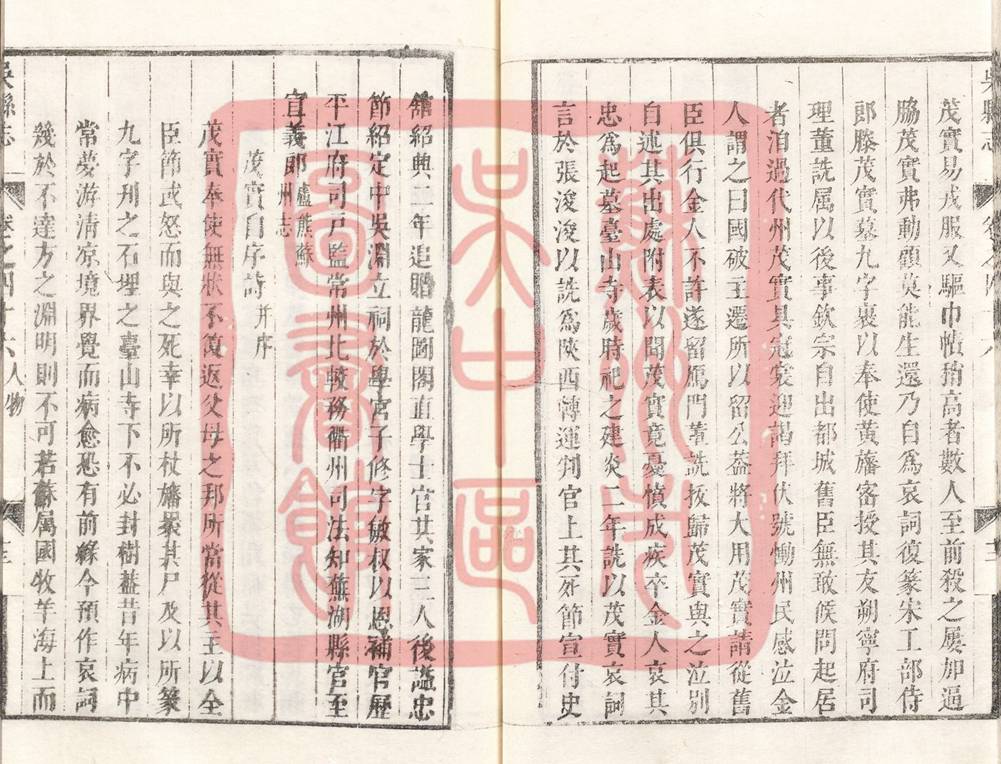 吳縣志
茂實易戎服又驅巾帳稍高者數人至前殺之屢加逼
脇茂實弗動顧莫能生還乃自爲哀詞復篆宋工部侍
郎滕茂實墓九字裹以奉使黃旛密授其友朔寧府司
理董詵屬以後事欽宗自出都城舊臣無敢候問起居
者洎過代州茂實具冠裳迎謁拜伏號慟州民感泣金
人謂之曰國破主遷所以留公葢將大用茂實請從舊
臣俱行金人不許遂留鴈門董詵拔歸茂實與之泣別
自述其出處附表以聞茂實竟憂憤成疾卒金人哀其
忠爲起墓臺山寺歲時祀之建炎二年詵以茂實哀詞
言於張浚浚以詵爲陝西轉運判官上其死節宣付史
舘紹興二年追贈龍圖閣直學士官其家三人後謚忠
節紹定中吳淵立祠於學宮子修字敏叔以恩補官歷
平江府司戸監常州北較務衢州司法知蕪湖縣官至
宣義郎盧熊蘇州志
茂實自序詩并序
茂實奉使無狀不復返父母之邦所當從其主以全
臣節或怒而與之死幸以所杖旛裹其尸及以所篆
九字刋之石埋之臺山寺下不必封樹葢昔年病中
常夢游清凉境界覺而病愈恐有前緣今預作哀詞
幾於不達方之淵明則不可若蘇屬國牧羊海上而
吳縣志 卷之四十六 人物
蘇州市吳中區圖書館